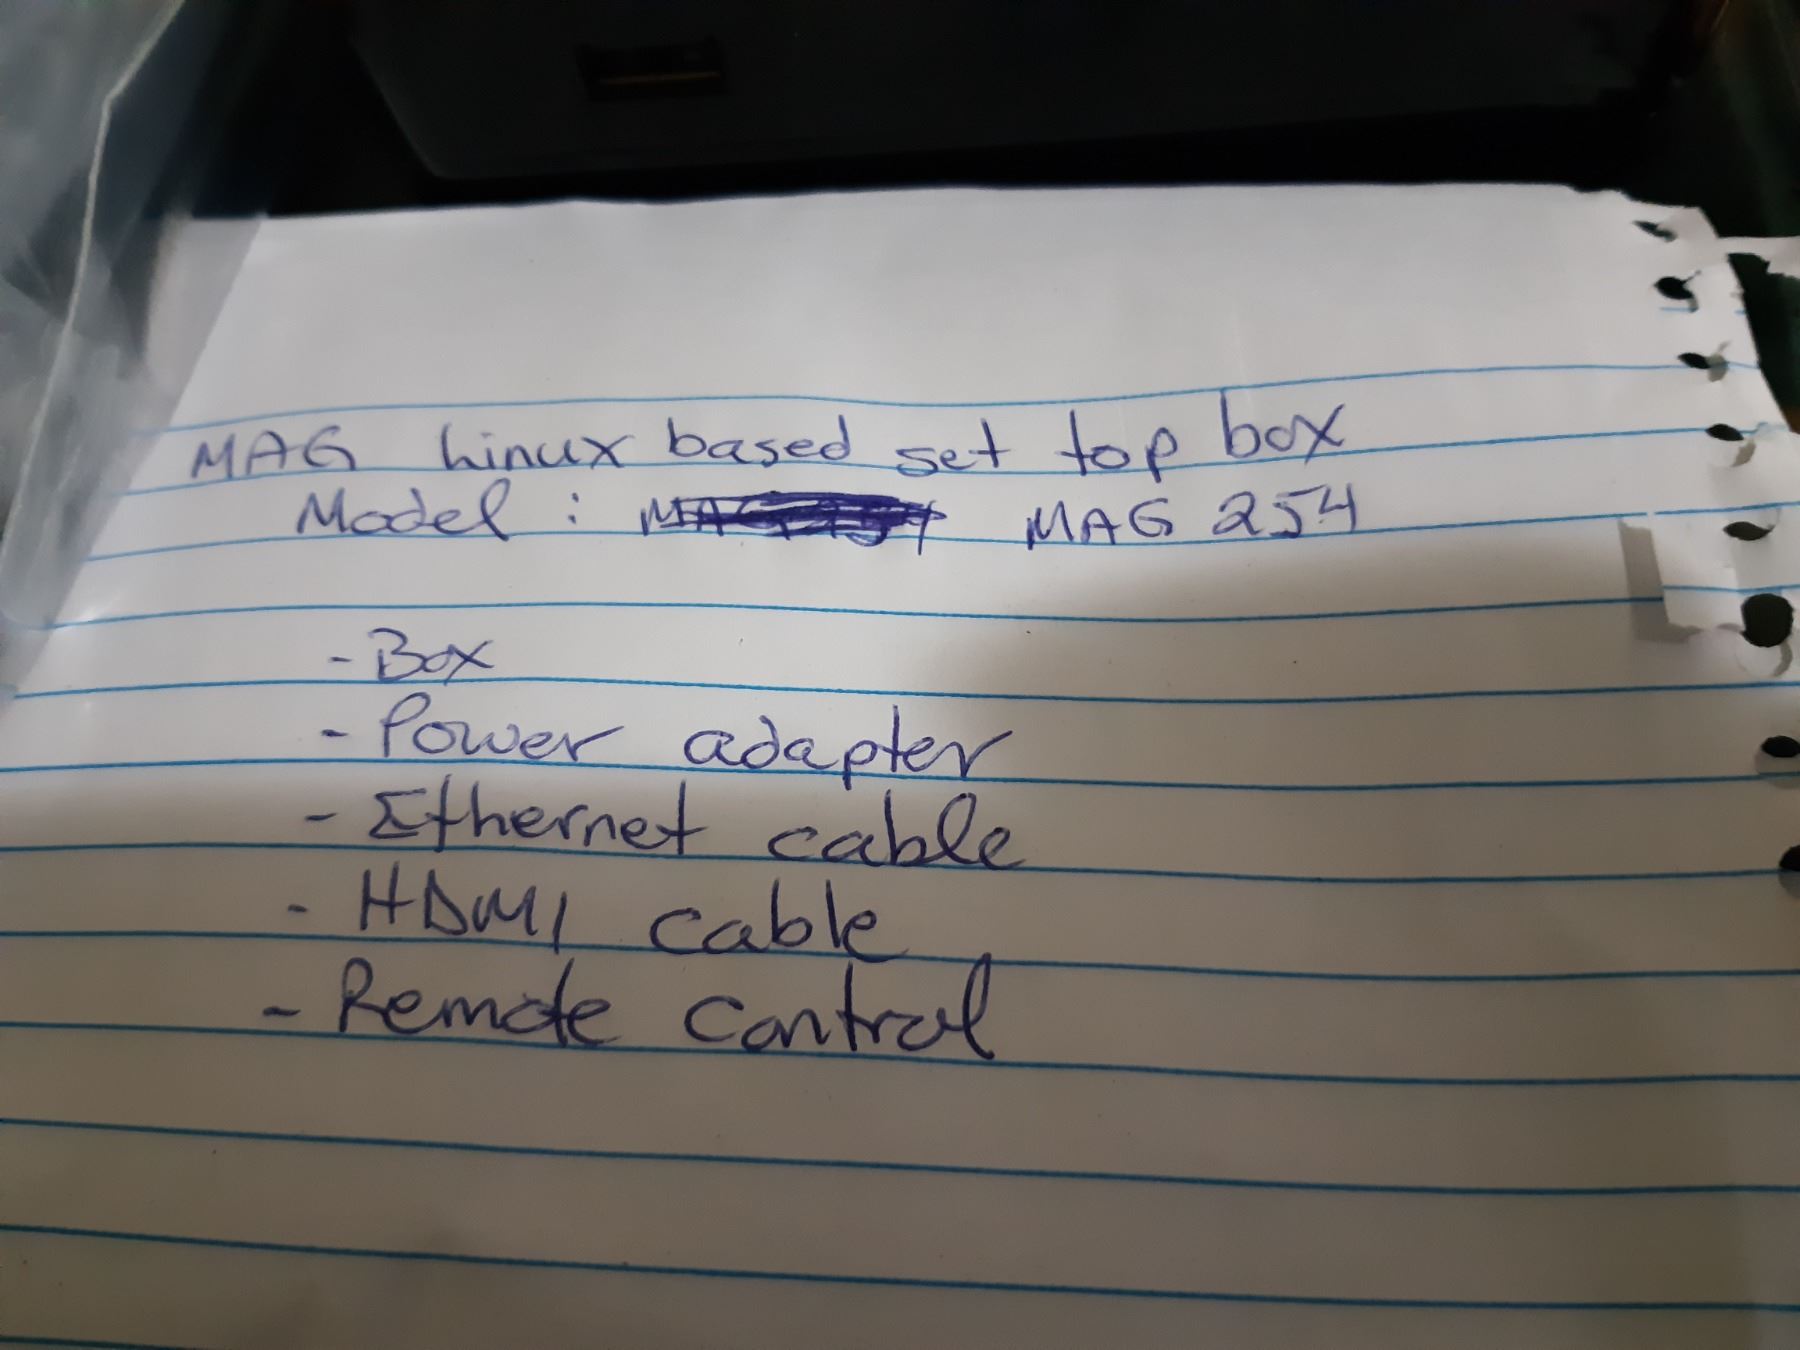 MAG Linux based set top box
Model : MAG 254
- Box
- Power adapter
- Ethernet cable
- HDMI cable
- Remote control